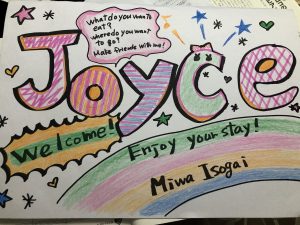 What do you want to
eat?
where do you want
to go?
Make friends with me!
Joyce
Welcome!
Enjoy your stay!
Miwa Isogai